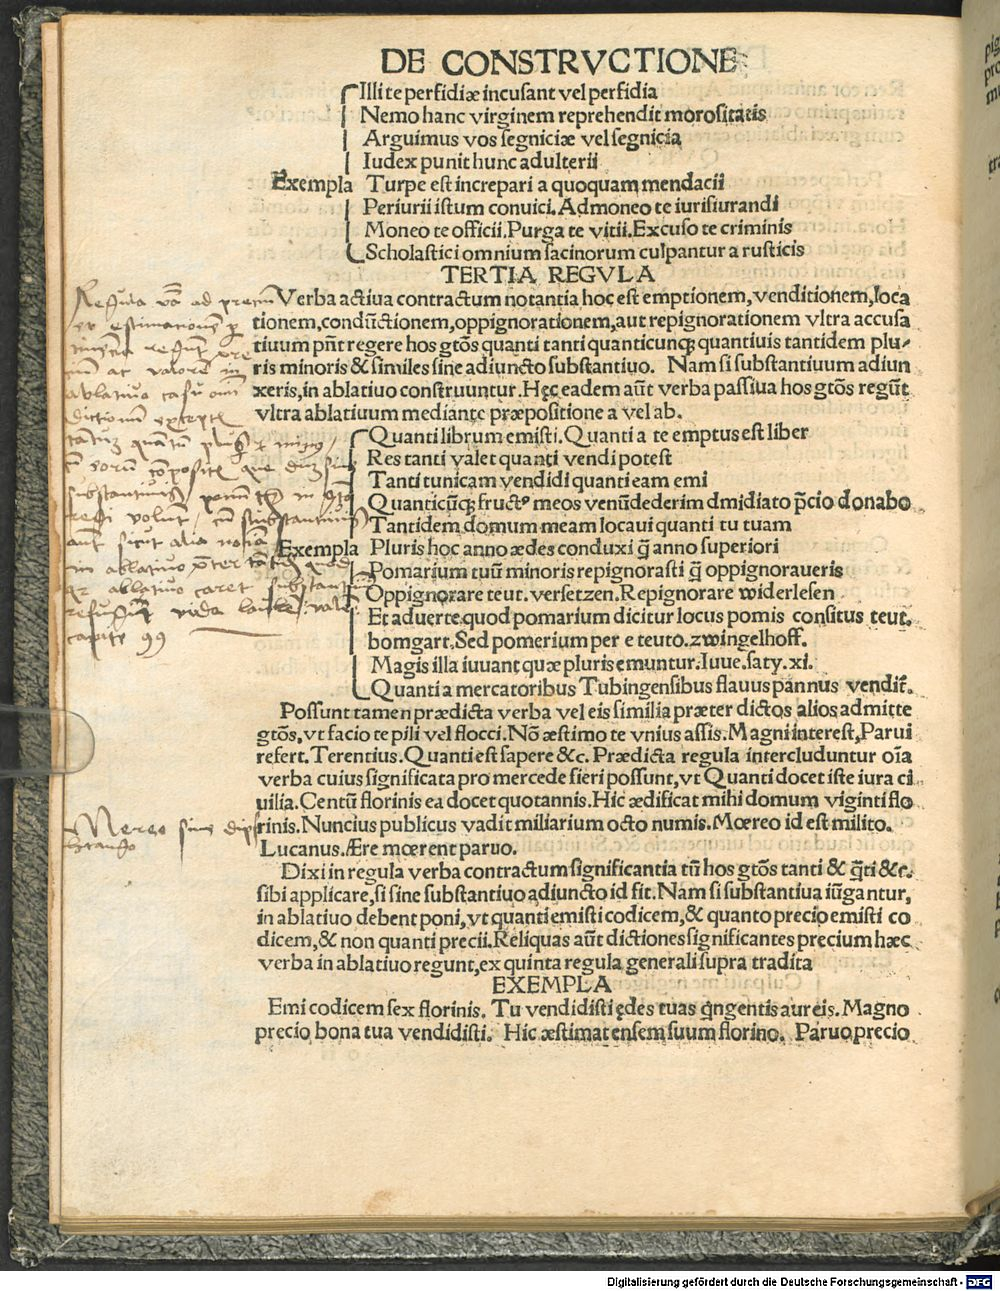 DE CONSTRVCTIONE
Illi te perfidiæ incusant vel perfidia
Nemo hanc virginem reprehendit morositatis
Arguimus vos segniciæ vel segnicia
Iudex punit hunc adulterii
Exempla Turpe est increpari a quoquam mendacii
Periurii istum conuici. Admoneo te iurisiurandi
Moneo te officii. Purga te vitii. Excuso te criminis
Scholastici omnium facinorum culpantur a rusticis
TERTIA REGVLA
Verba actiua contractum notantia hoc est emptionem, venditionem, loca
tionem, condũctionem, oppignorationem, aut repignorationem vltra accusa
tiuum pñt regere hos gtõs quanti tanti quanticunq; quantiuis tantidem plu-
ris minoris & similes sine adiuncto substantiuo. Nam si substantiuum adiun
xeris, in ablatiuo construuntur. Hęc eadem aũt verba passiua hos gtõs regũt
vltra ablatiuum mediante præpositione a vel ab.
Quanti librum emisti. Quanti a te emptus est liber
Res tanti valet quanti vendi potest
Tanti tunicam vendidi quanti eam emi
Quanticũq; fructꝰ meos venũdederim dmidiato p̃cio donabo
Tantidem domum meam locaui quanti tu tuam
Exempla Pluris hoc anno ædes conduxi q̃ anno superiori
Pomarium tuũ minoris repignorasti q̃ oppignoraueris
Oppignorare teut. versetzen. Repignorare widerlesen
Et aduerte, quod pomarium dicitur locus pomis consitus teut.
bomgart. Sed pomerium per e teuto. zwingelhoff.
Magis illa iuuant quæ pluris emuntur. Iuue. saty. xi.
Quanti a mercatoribus Tubingensibus flauus pannus vendit̃.
Possunt tamen prædicta verba vel eis similia præter dictos alios admitte
gtõs, vt facio te pili vel flocci. Nõ æstimo te vnius assis. Magni interest, Parui
refert. Terentius. Quanti est sapere &c. Prædicta regula intercluduntur oĩa
verba cuius significata pro mercede fieri possunt, vt Quanti docet iste iura ci
uilia. Centũ florinis ea docet quotannis. Hic ædificat mihi domum viginti flo
rinis. Nuncius publicus vadit miliarium octo numis. Mœreo id est milito.
Lucanus. Ære mœrent paruo.
Dixi in regula verba contractum significantia tũ hos gtõs tanti & q̃ti &c.
sibi applicare, si sine substantiuo adiuncto id fit. Nam si substantiua iũgantur,
in ablatiuo debent poni, vt quanti emisti codicem, & quanto precio emisti co
dicem, & non quanti precii. Reliquas aũt dictiones significantes precium hæc
verba in ablatiuo regunt, ex quinta regula generali supra tradita
EXEMPLA
Emi codicem sex florinis. Tu vendidisti ędes tuas q̃ngentis aureis. Magno
precio bona tua vendidisti. Hic æstimat ensem suum florino. Paruo precio
Regula
ad precium
ablatiuo casu
substantiuis
in ablatiuo
ablatiuo caret
capite 99
Mereo siue
Digitalisierung gefördert durch die Deutsche Forschungsgemeinschaft - DFG